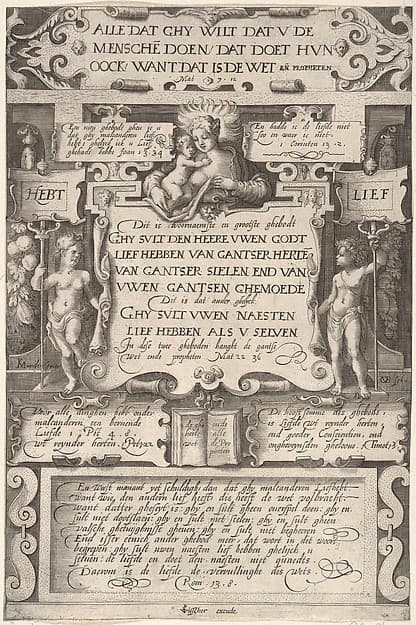 ALLE DAT GHY WILT DAT V DE
MENSCHĒ DOEN, DAT DOET HVN
OOCK: WANT DAT IS DE WET EÑ PROPHETEN
Mat 7. 12
Een nieu ghebodt gheve ic u
dat ghy malcanderen lief
hebt ghelijck ick u Lief
ghehadt hebbe Joan 13.34
En hadde ic de liefde niet
soo en waer ic niet.
1 Corinten 13. 2.
HEBT
LIEF
Dit is dvoornaemste en grootste ghebodt
GHY SVLT DEN HEERE VWEN GODT
LIEF HEBBEN VAN GANTSER HERTE
VAN GANTSER SIELEN END VAN
VWEN GANTSEN GHEMOEDE
Dit is dat ander ghelijck
GHY SVLT VWEN NAESTEN
LIEF HEBBEN ALS V SELVEN
In dese twee gheboden hanght de gantse
Wet ende propheten Mat 22 36
Voor alle dinghen hebt onder
malcanderen een bernende
Liefde 1 Pet 4. 8
wt reynder herten.
de
wet
ende
De hooft somme des ghebods
is Liefde wt reynder herten,
end goeder Conscientien, end
ongheveynsden gheloove. 1 Timot 1
En Weest niemant yet schuldigh dan dat ghy malcanderen Liefhebt.
want wie den andern lief heeft die heeft de wet volbracht.
want datter gheseyt is: ghy en sult gheen overspel doen: ghy en
sult niet dootslaen: ghy en sult niet stelen: ghy en sult gheen
valsche ghetuyghenisse gheven: ghy en sult niet begheeren
End isser eenich ander ghebod meer, dat wort in dit woort
begrepen ghy sult uwen naesten lief hebben ghelijck u
selven: de liefde en doet den naesten niet quaedts
Daerom is de liefde de vervullinghe des Wets
Rom 13. 8.
Visscher excude.